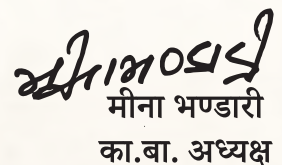 मीना भण्डारी
का.बा. अध्यक्ष